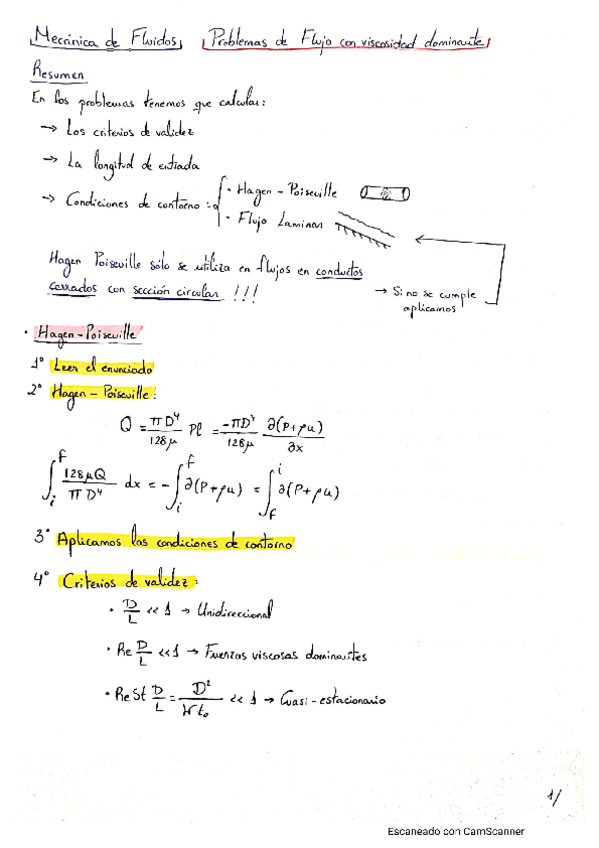 Mecánica de Fluidos, Problemas de Flujo con viscosidad dominante
Resumen
En los problemas tenemos que calcular:
→ Los criterios de validez
→ La longitud de entrada
→ Condiciones de contorno: { · Hagen - Poiseuille
· Flujo Laminar
Hagen Poiseuille sólo se utiliza en flujos en conductos
cerrados con sección circular !!!
→ Si no se cumple
aplicamos
· Hagen - Poiseuille
1° Leer el enunciado
2° Hagen - Poiseuille:
Q = πD⁴/128μ Pl = -πD⁴/128μ ∂(P+ρu)/∂x
∫ᵢᶠ 128μQ/πD⁴ dx = -∫ᵢᶠ ∂(P+ρu) = ∫fⁱ ∂(P+ρu)
3° Aplicamos las condiciones de contorno
4° Criterios de validez:
· D/L << 1 → Unidireccional
· Re D/L << 1 → Fuerzas viscosas dominantes
· Re St D/L = D²/νt₀ << 1 → Cuasi-estacionario
1/
Escaneado con CamScanner